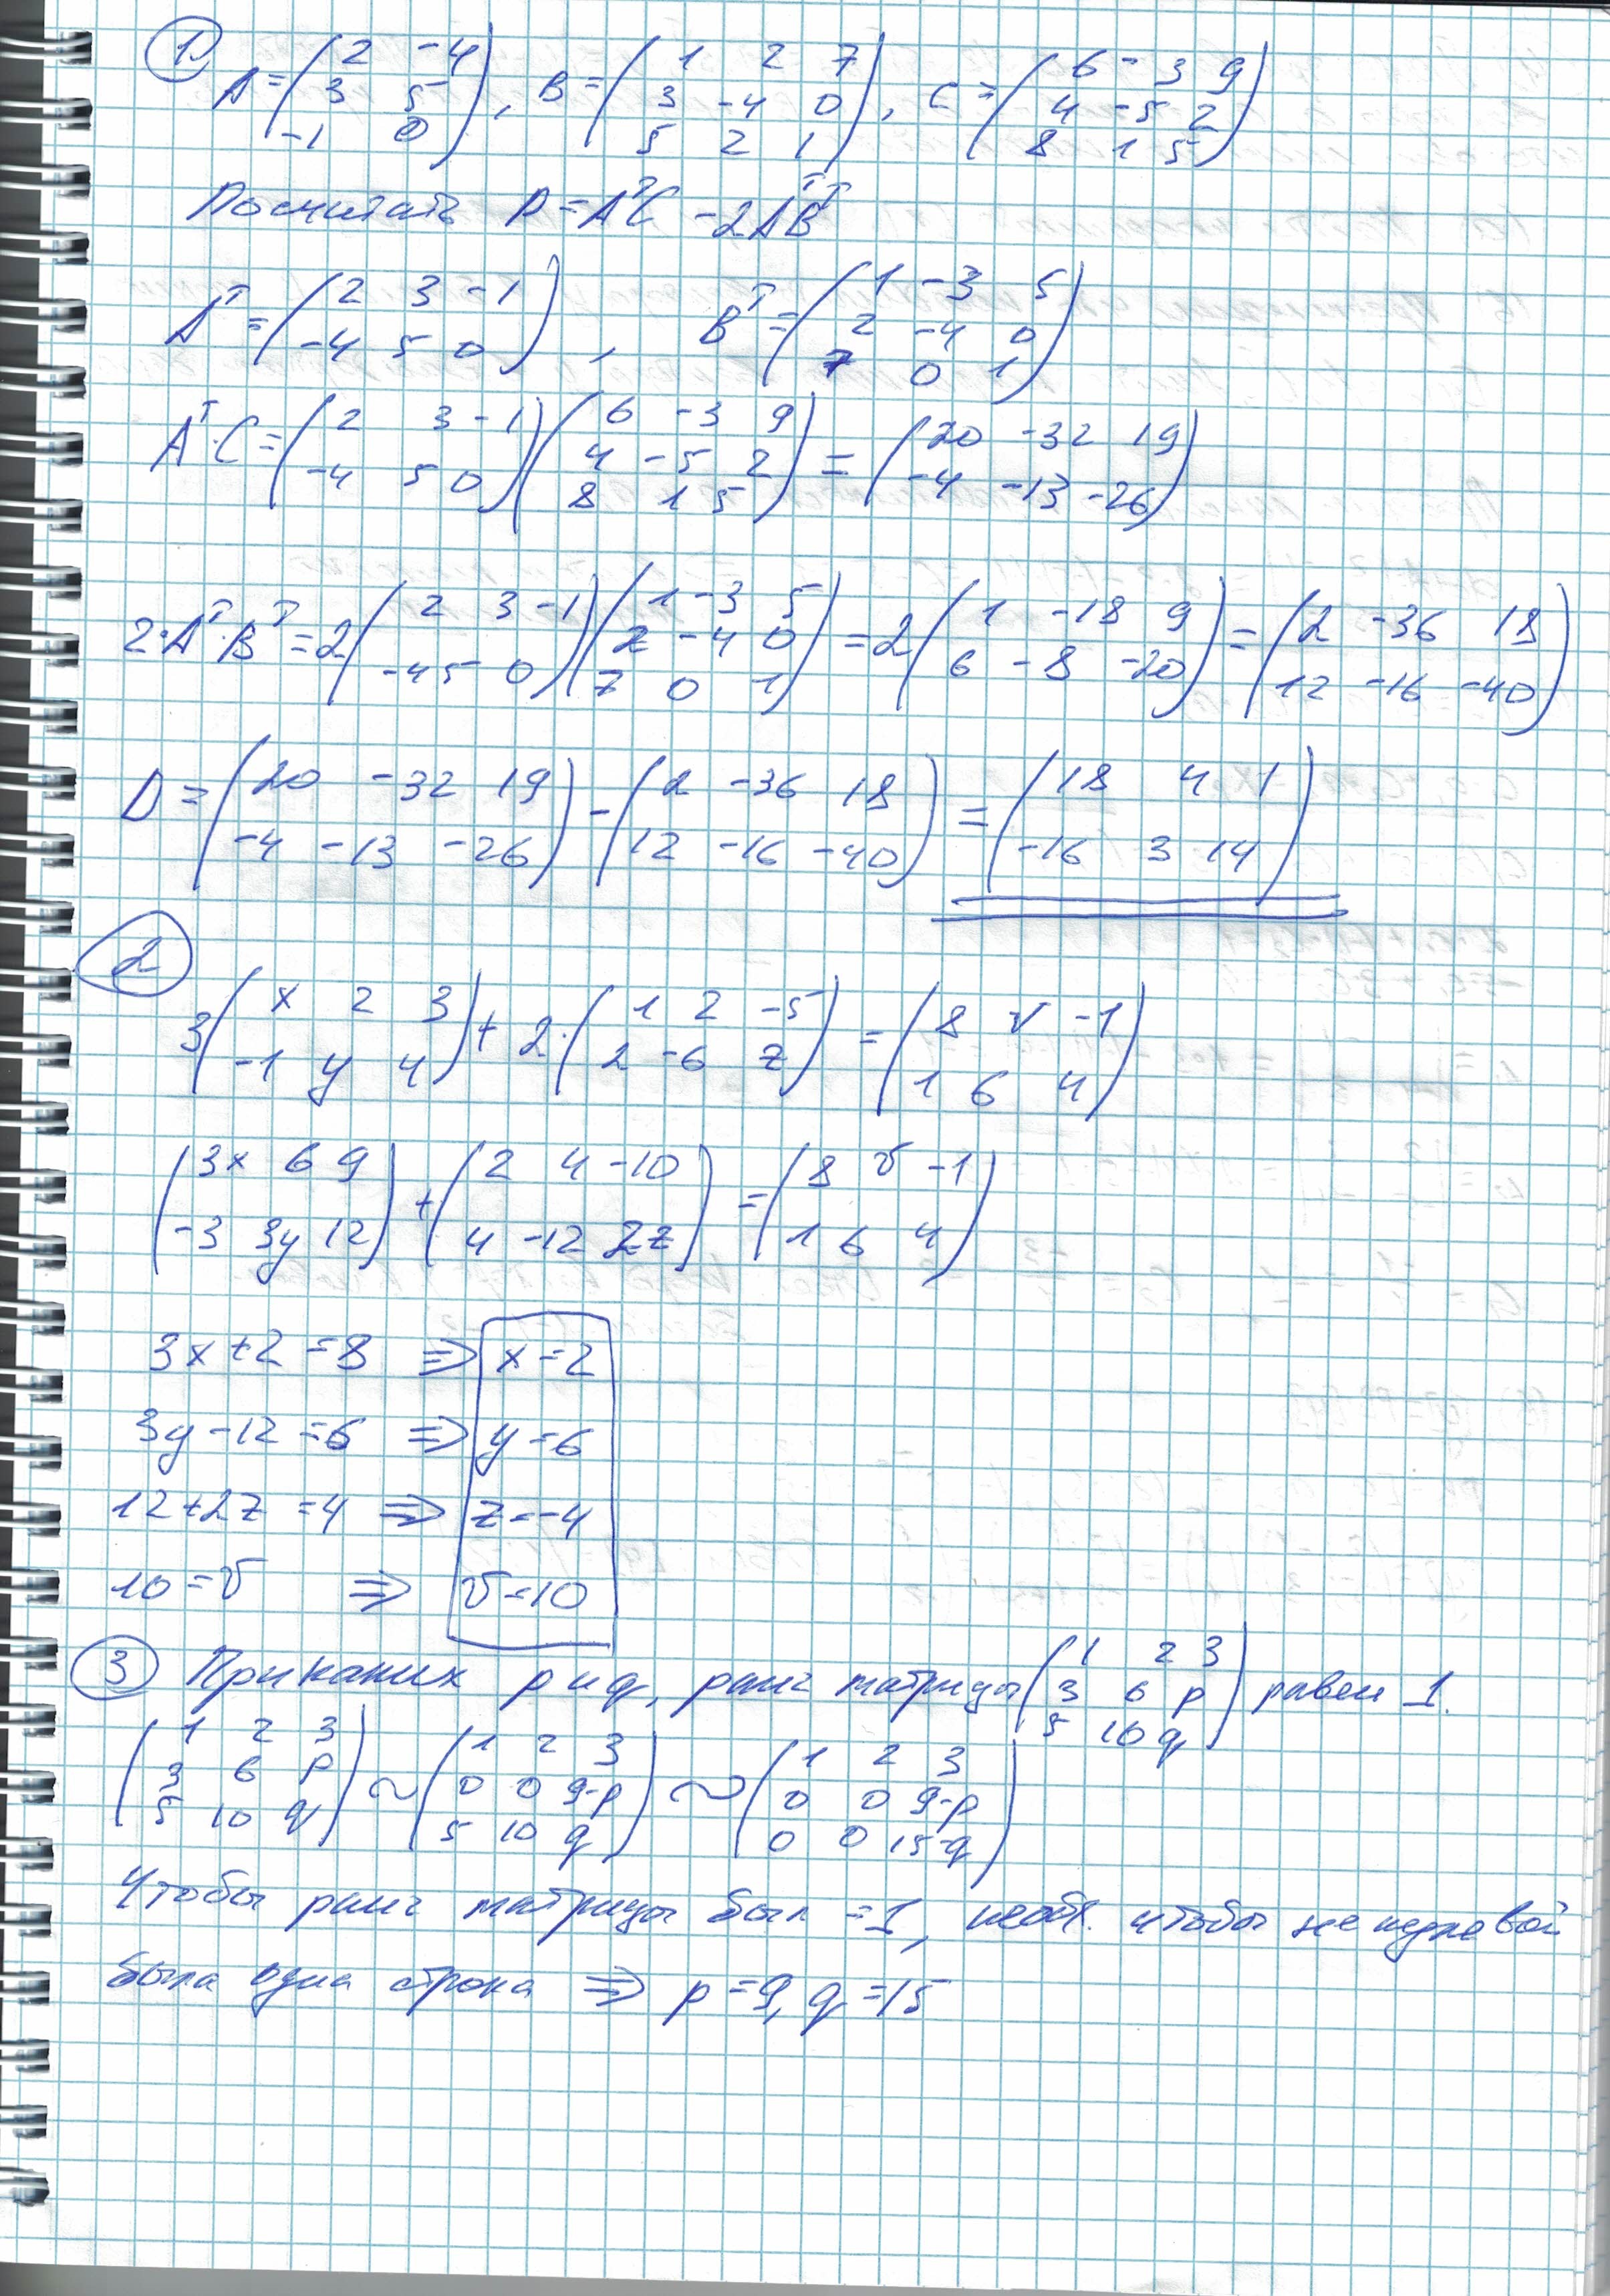 ① A = (2 -4; 3 5; -1 0), B = (1 2 7; 3 -4 0; 5 2 1), C = (6 -3 9; 4 -5 2; 8 1 5)
Посчитать D = AᵀC - 2AᵀBᵀ
Aᵀ = (2 3 -1; -4 5 0), Bᵀ = (1 -3 5; 2 -4 0; 7 0 1)
Aᵀ·C = (2 3 -1; -4 5 0)(6 -3 9; 4 -5 2; 8 1 5) = (20 -32 19; -4 -13 -26)
2·Aᵀ·Bᵀ = 2(2 3 -1; -4 5 0)(1 -3 5; 2 -4 0; 7 0 1) = 2(1 -18 9; 6 -8 -20) = (2 -36 18; 12 -16 -40)
D = (20 -32 19; -4 -13 -26) - (2 -36 18; 12 -16 -40) = (18 4 1; -16 3 14)
②
3(x 2 3; -1 y 4) + 2·(1 2 -5; 2 -6 z) = (8 v -1; 1 6 4)
(3x 6 9; -3 3y 12) + (2 4 -10; 4 -12 2z) = (8 v -1; 1 6 4)
3x+2=8 ⇒ x=2
3y-12=6 ⇒ y=6
12+2z=4 ⇒ z=-4
10=v ⇒ v=10
③ При каких p и q, ранг матрицы (1 2 3; 3 6 p; 5 10 q) равен 1.
(1 2 3; 3 6 p; 5 10 q) ~ (1 2 3; 0 0 9-p; 5 10 q) ~ (1 2 3; 0 0 9-p; 0 0 15-q)
Чтобы ранг матрицы был =1, необх. чтобы не нулевой
была одна строка ⇒ p=9, q=15